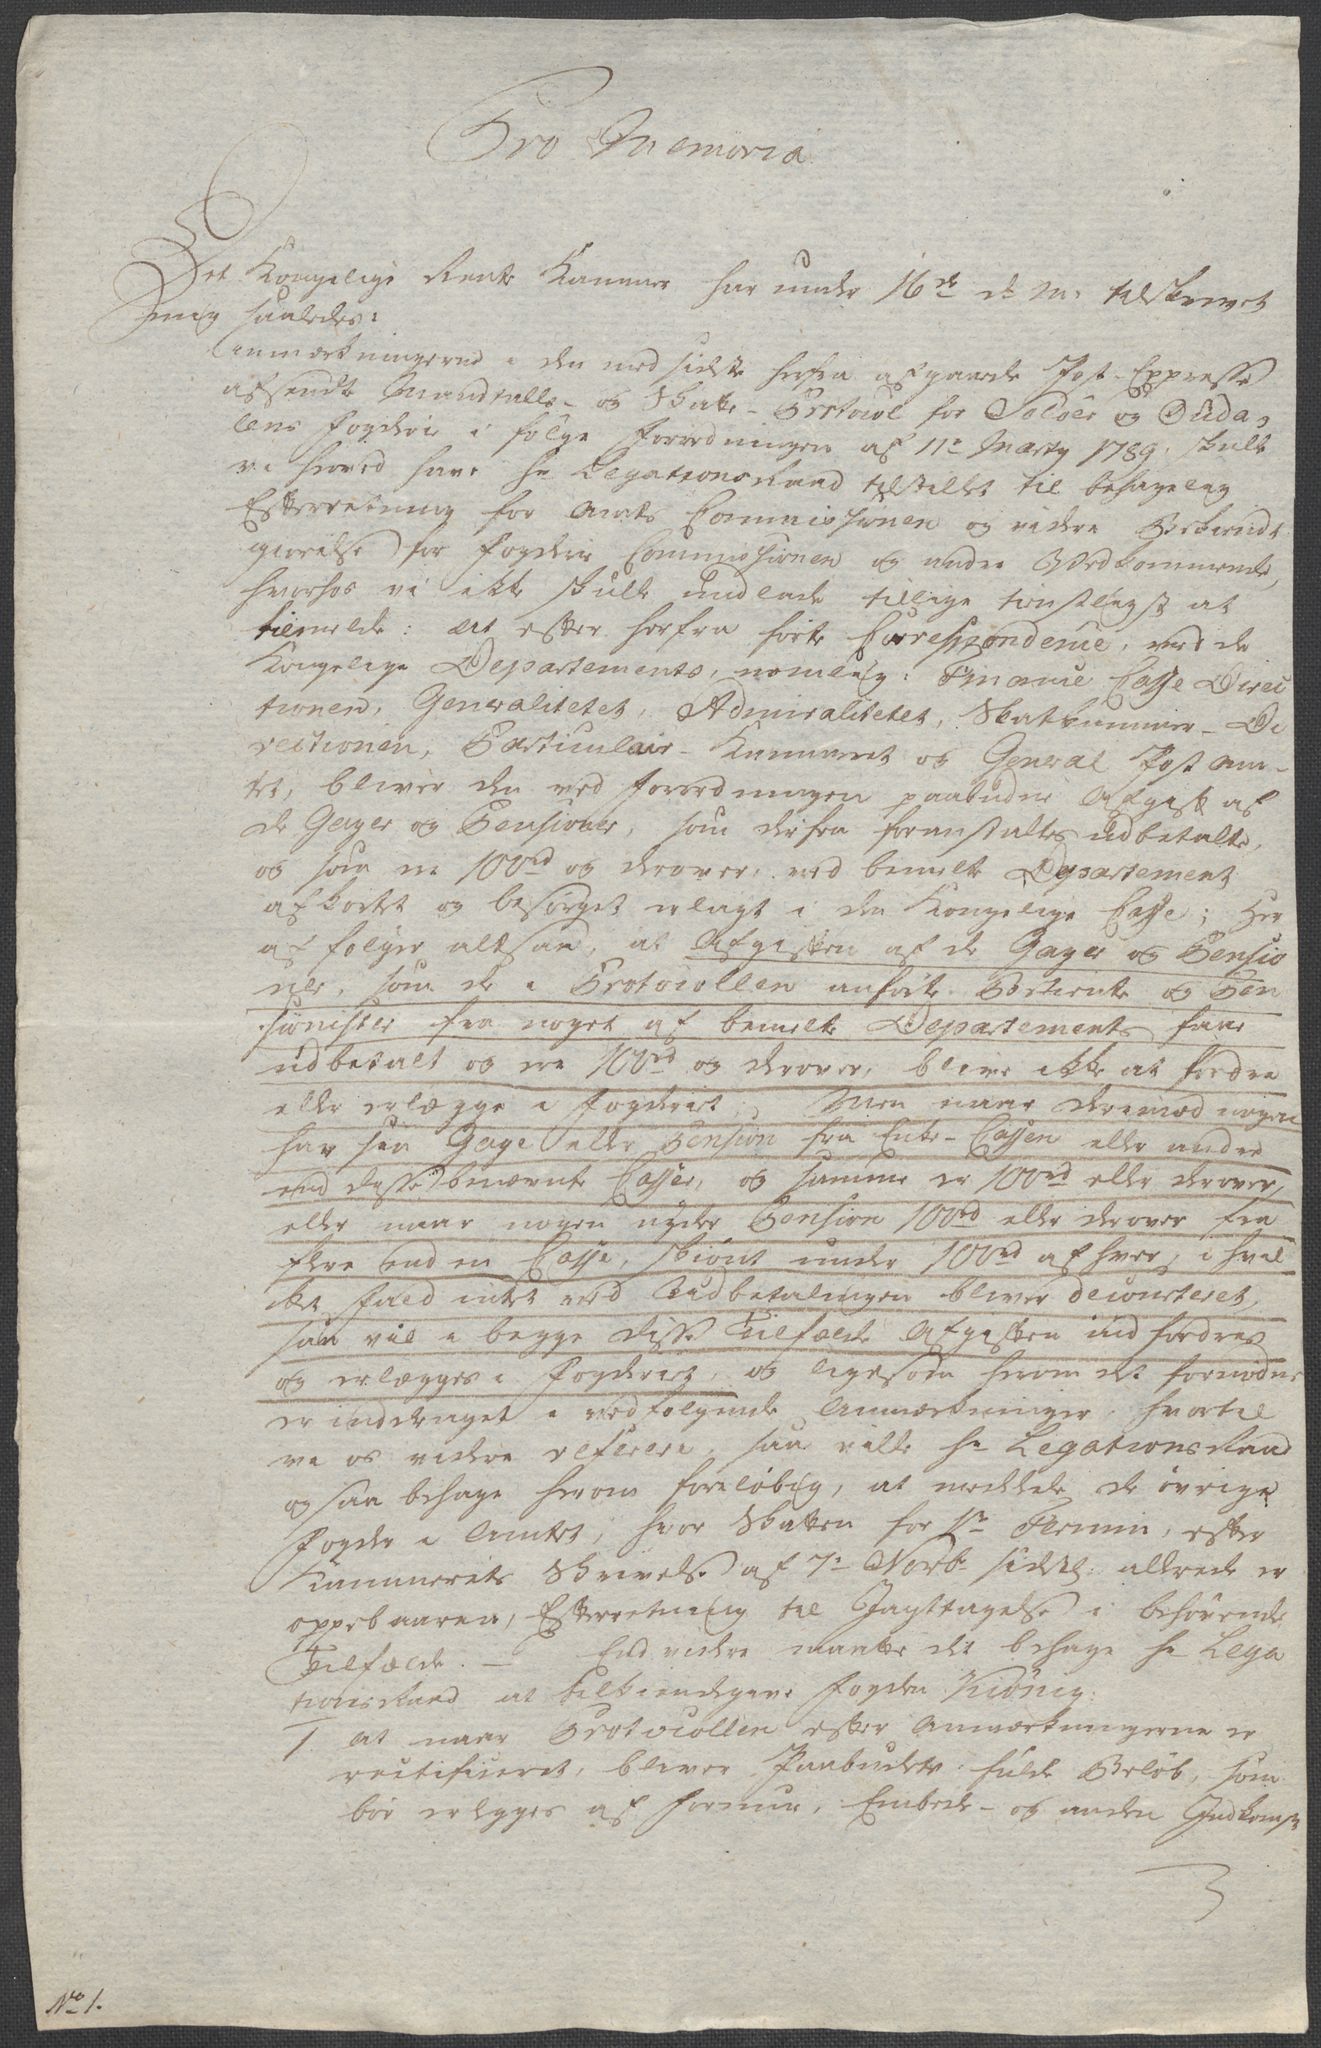 Pro Memoria
Det Kongelige Rente Kammer har under 16de d: M: tilskrevet
mig saaledes:
Anmærkningerne i den med sidste herfra afgaaede Post-Expresse
afsendte Mandtalls- og Skatte-Protocol for Soløer og Oudal,
lens Fogderie i følge Forordningen af 11te Marty 1789, skulle
vi herved have hr Legationsraad tilstillet til behagelig
Efterretning for Amts Commissionen og videre Bekiendt
giørelse for Fogderie Commissionen og andre Vedkommende,
hvorhos vi ikke skulle undlade tillige tienstligst at
tilmelde: at efter herfra førte Correspondence, med de
Kongelige Departements, nemlig: Finance Casse Direc
tionen, Generalitetet, Admiralitetet, Skatkammer-Di
rectionen, Particulair-Kammeret og General Post Am-
tet, bliver den ved Forordningen paabudne Afgift af
de Gager og Pensioner, som derfra foranstaltes udbetalte,
og som ere 100rd og derover, ved bemelte Departement
afkortet og besørget erlagt i den Kongelige Casse; Her
af følger altsaa, at Afgiften af de Gager og Pensio
ner, som de i Protocollen anførte Betiente og Pen
sionister fra noget af bemelte Departements faae
udbetalt og ere 100rd og derover, blive ikke at fordre
eller erlægge i Fogderiet; Men naar derimod nogen
har sin Gage eller Pension fra Enke-Cassen eller andre
end disse benævnte Casser, og samme er 100rd eller derover,
eller naar nogen nyder Pension 100rd eller derover fra
flere end en Casse, skiønt under 100rd af hver, i hvil
ket Fald intet ved Udbetalingen bliver decourteret,
saa vil i begge disse Tilfælde Afgiften indfordres
og erlægges i Fogderiet, og ligesom herom det fornødne
er inddraget i medfølgende Anmærkninger, hvortil
vi os videre referere, saa ville hr Legationsraad
ogsaa behage herom foreløbig, at meddele de øvrige
Fogder i Amtet, hvor Skatten for 1te Termin, efter
Kammerets Skrivelse af 7de Novbr sidstl: allerede er
oppebaaren, Efterretning til Jagttagelse i behøvende
Tilfælde. — End videre maatte det behage hr Lega
tionsraad at tilkiendegive Fogden Kiønig:
1. at naar Protocollen efter Anmærkningerne er
rectificeret, bliver Paabudets fulde Beløb, som
bør erlegges af Formue, Embede- og anden Indkomst
No 1.